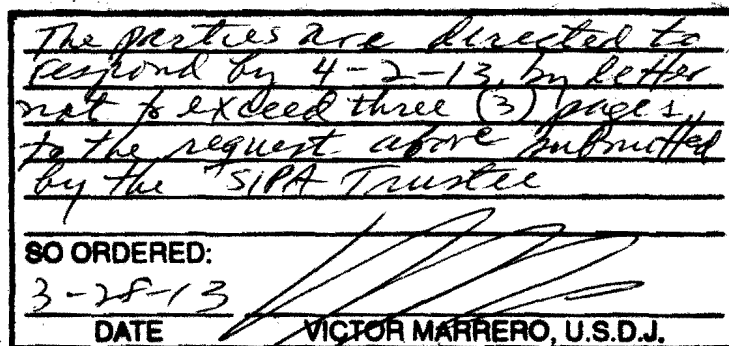 The parties are directed to
respond by 4-2-13, by letter
not to exceed three (3) pages,
to the request above submitted
by the SIPA Trustee
SO ORDERED:
3-28-13
DATE VICTOR MARRERO, U.S.D.J.